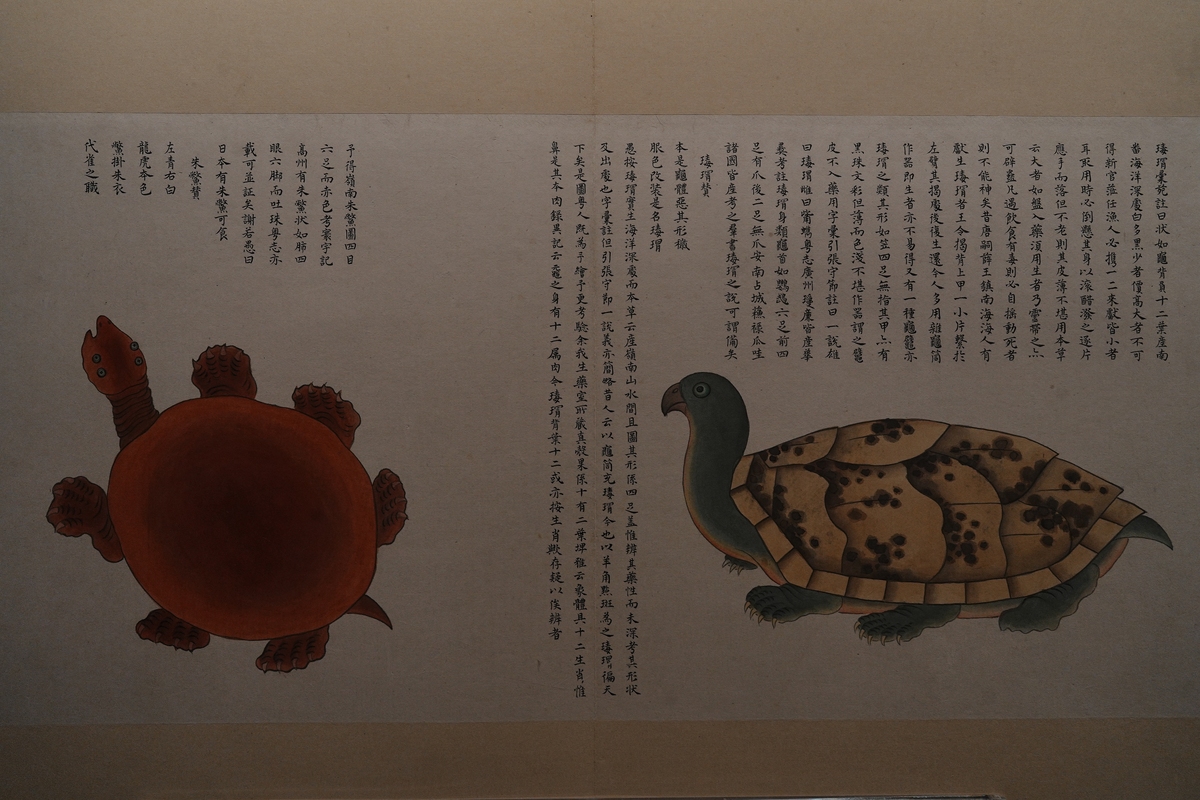 瑇瑁字彙註曰狀如龜背負十二葉產南
番海洋深處白多黑少者價高大者不可
得新官蒞任漁人必携一二來獻皆小者
耳取用時必倒懸其身以滾醋潑之逐片
應手而落但不老則其皮薄不堪用本草
云大者如盤入藥須用生者乃靈帶之亦
可辟蠱凡遇飲食有毒則必自搖動死者
則不能神矣昔唐嗣薛王鎮南海海人有
獻生瑇瑁者王令揭背上甲一小片繫於
左臂其揭處後復生還今人多用雜龜筒
作器即生者亦不易得又有一種龜鼊亦
瑇瑁之類其形如笠四足無指其甲亦有
黑珠文彩但薄而色淺不堪作器謂之鼊
皮不入藥用字彙引張守節註曰一說雄
曰瑇瑁雌曰觜蠵粵志廣州瓊廉皆產
異考註瑇瑁身類龜首如鸚鵡六足前四
足有爪後二足無爪安南占城蘇祿爪哇
諸國皆產考之羣書瑇瑁之說可謂備矣
瑇瑁贊
本是龜體惡其形穢
服色改裝是名瑇瑁
愚按瑇瑁實生海洋深處而本草云產嶺南山水間且圖其形係四足蓋惟辨其藥性而未深考其形狀
及出處也字彙註但引張守節一說義亦簡略昔人云以龜筒充瑇瑁今也以羊角點斑為之瑇瑁徧天
下矣是圖粵人既為予繪予更考驗余我生藥室所藏真殼果係十有二葉埤雅云象體具十二生肖惟
鼻是其本肉錄異記云黿之身有十二屬肉今瑇瑁背葉十二或亦按生肖歟存疑以俟辨者
予得嶺南朱鱉圖四目
六足而赤色考寰宇記
高州有朱鱉狀如肺四
眼六脚而吐珠粵志亦
載可並証矣謝若愚曰
日本有朱鱉可食
朱鱉贊
左青右白
龍虎本色
鱉掛朱衣
代雀之職